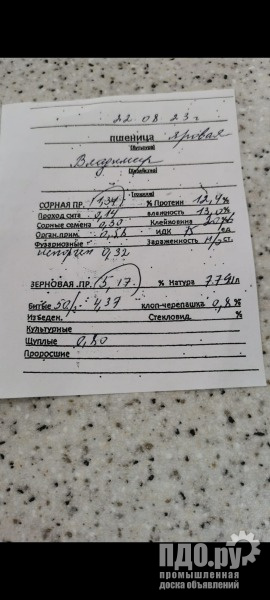 22 08 23 г
пшеница яровая
Владимир
СОРНАЯ ПР. 1,34 % Протеин 12,4%
Проход сита 0,14 влажность 13,0%
Сорные семена 0,30 Клейковина
Орган.прим. ИДК ед.
Фузариозные Зараженность н/о ст.
0,32
ЗЕРНОВАЯ .ПР. 5,17 % Натура 779г/л
Битые 50/: 4,37 клоп-черепашка 0,8%
Изъеден. Стекловид. %
Культурные
Щуплые 0,80
Проросшие
ПДО.ру
промышленная
доска объявлений